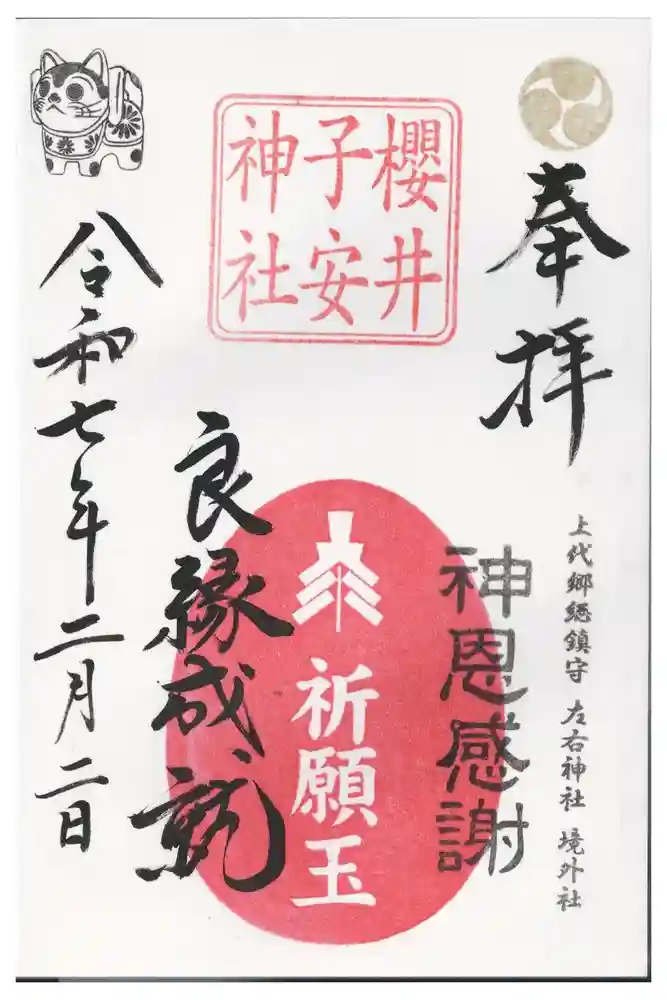 奉拝
上代郷総鎮守 左右神社 境外社
櫻井
子安
神社
神恩感謝
祈願玉
良縁成就
令和七年二月二日